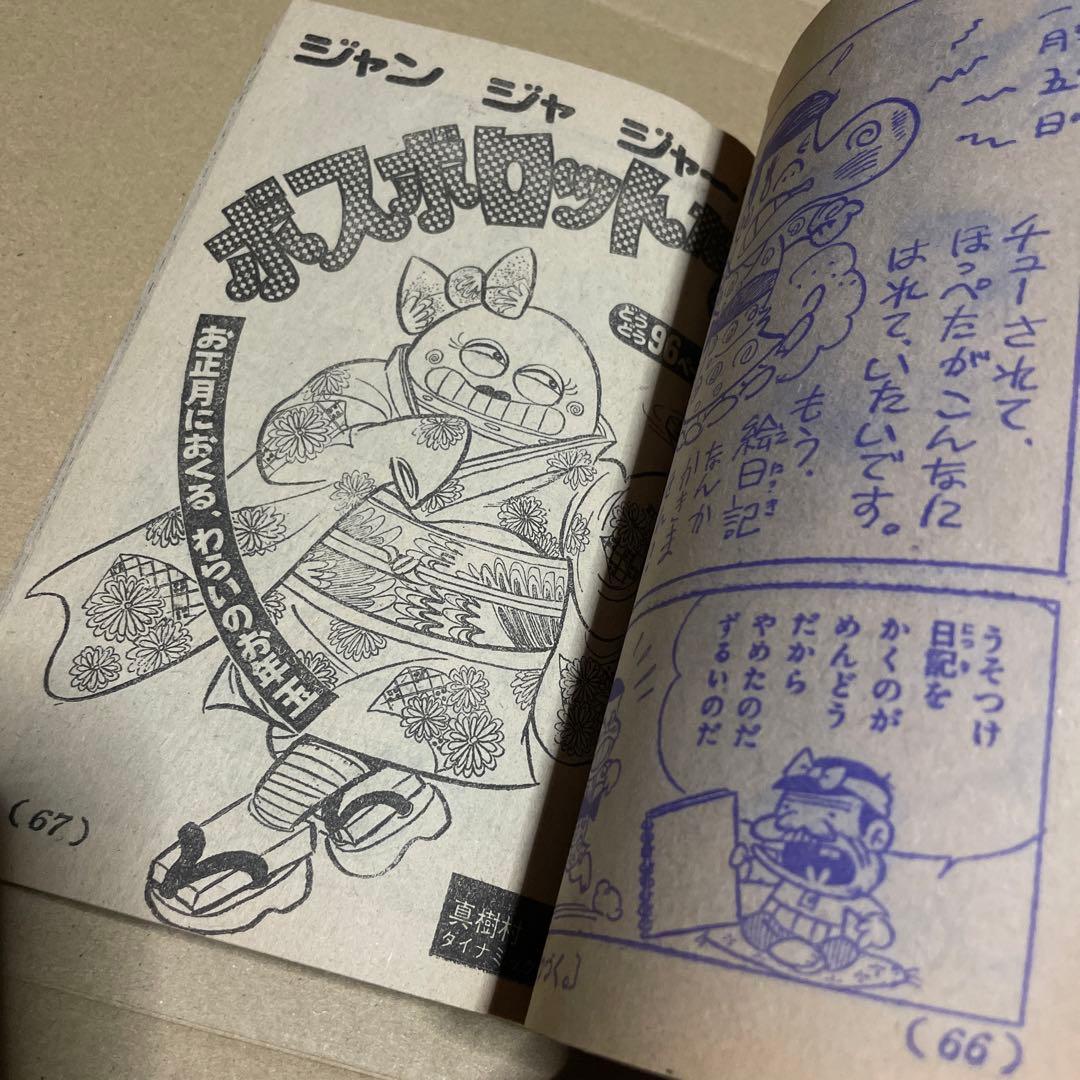 一月五日
チューされて、
ほっぺたがこんなに
はれて、いたいです。
もう、
絵日記
なんか
うそつけ
日記を
にっき
かくのが
めんどう
だから
やめたのだ
ずるいのだ
(66)
ジャン ジャ ジャーン
ボスボロット
とうとう96ペ
お正月におくる、わらいのお年玉
真樹村
ダイナミック
(67)